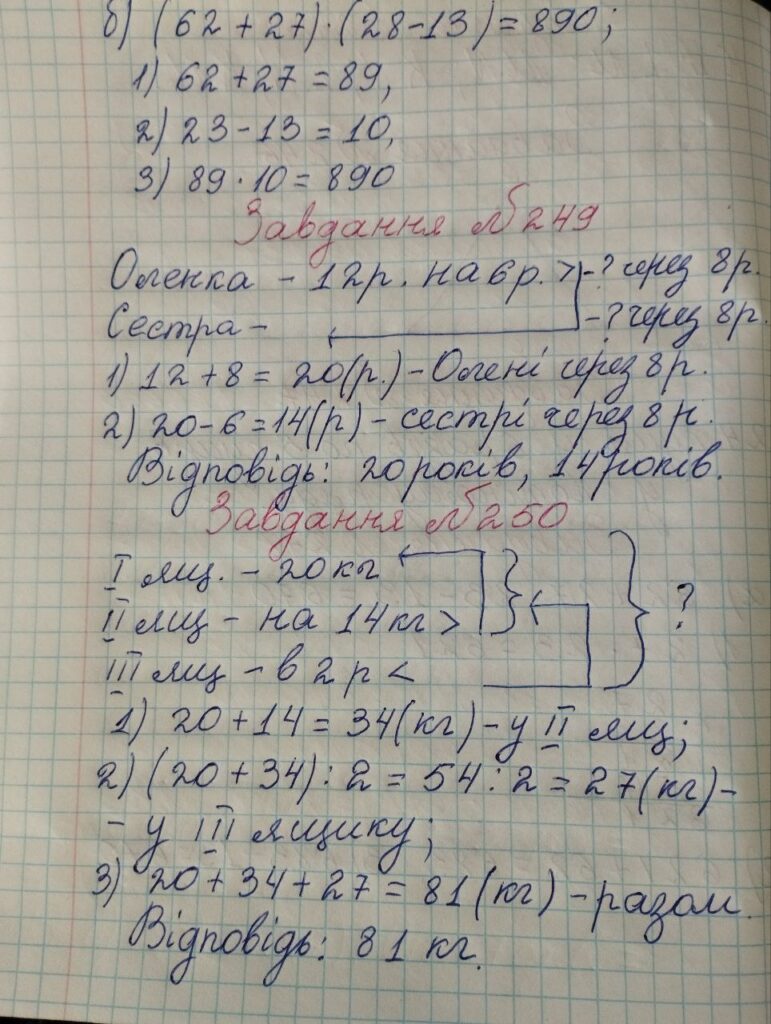 б) (62 + 27) · (28 - 13) = 890;
1) 62 + 27 = 89,
2) 23 - 13 = 10,
3) 89 · 10 = 890
Завдання №249
Оленка - 12р. на 6р. > -? через 8р.
Сестра - -? через 8р.
1) 12 + 8 = 20(р.) - Олені через 8р.
2) 20 - 6 = 14(р) - сестрі через 8р.
Відповідь: 20 років, 14 років.
Завдання №250
I ящ. - 20кг
II ящ - на 14кг > ?
III ящ - в 2 р <
1) 20 + 14 = 34(кг) - у II ящ;
2) (20 + 34) : 2 = 54 : 2 = 27(кг) -
- у III ящику;
3) 20 + 34 + 27 = 81(кг) - разом.
Відповідь: 81 кг.